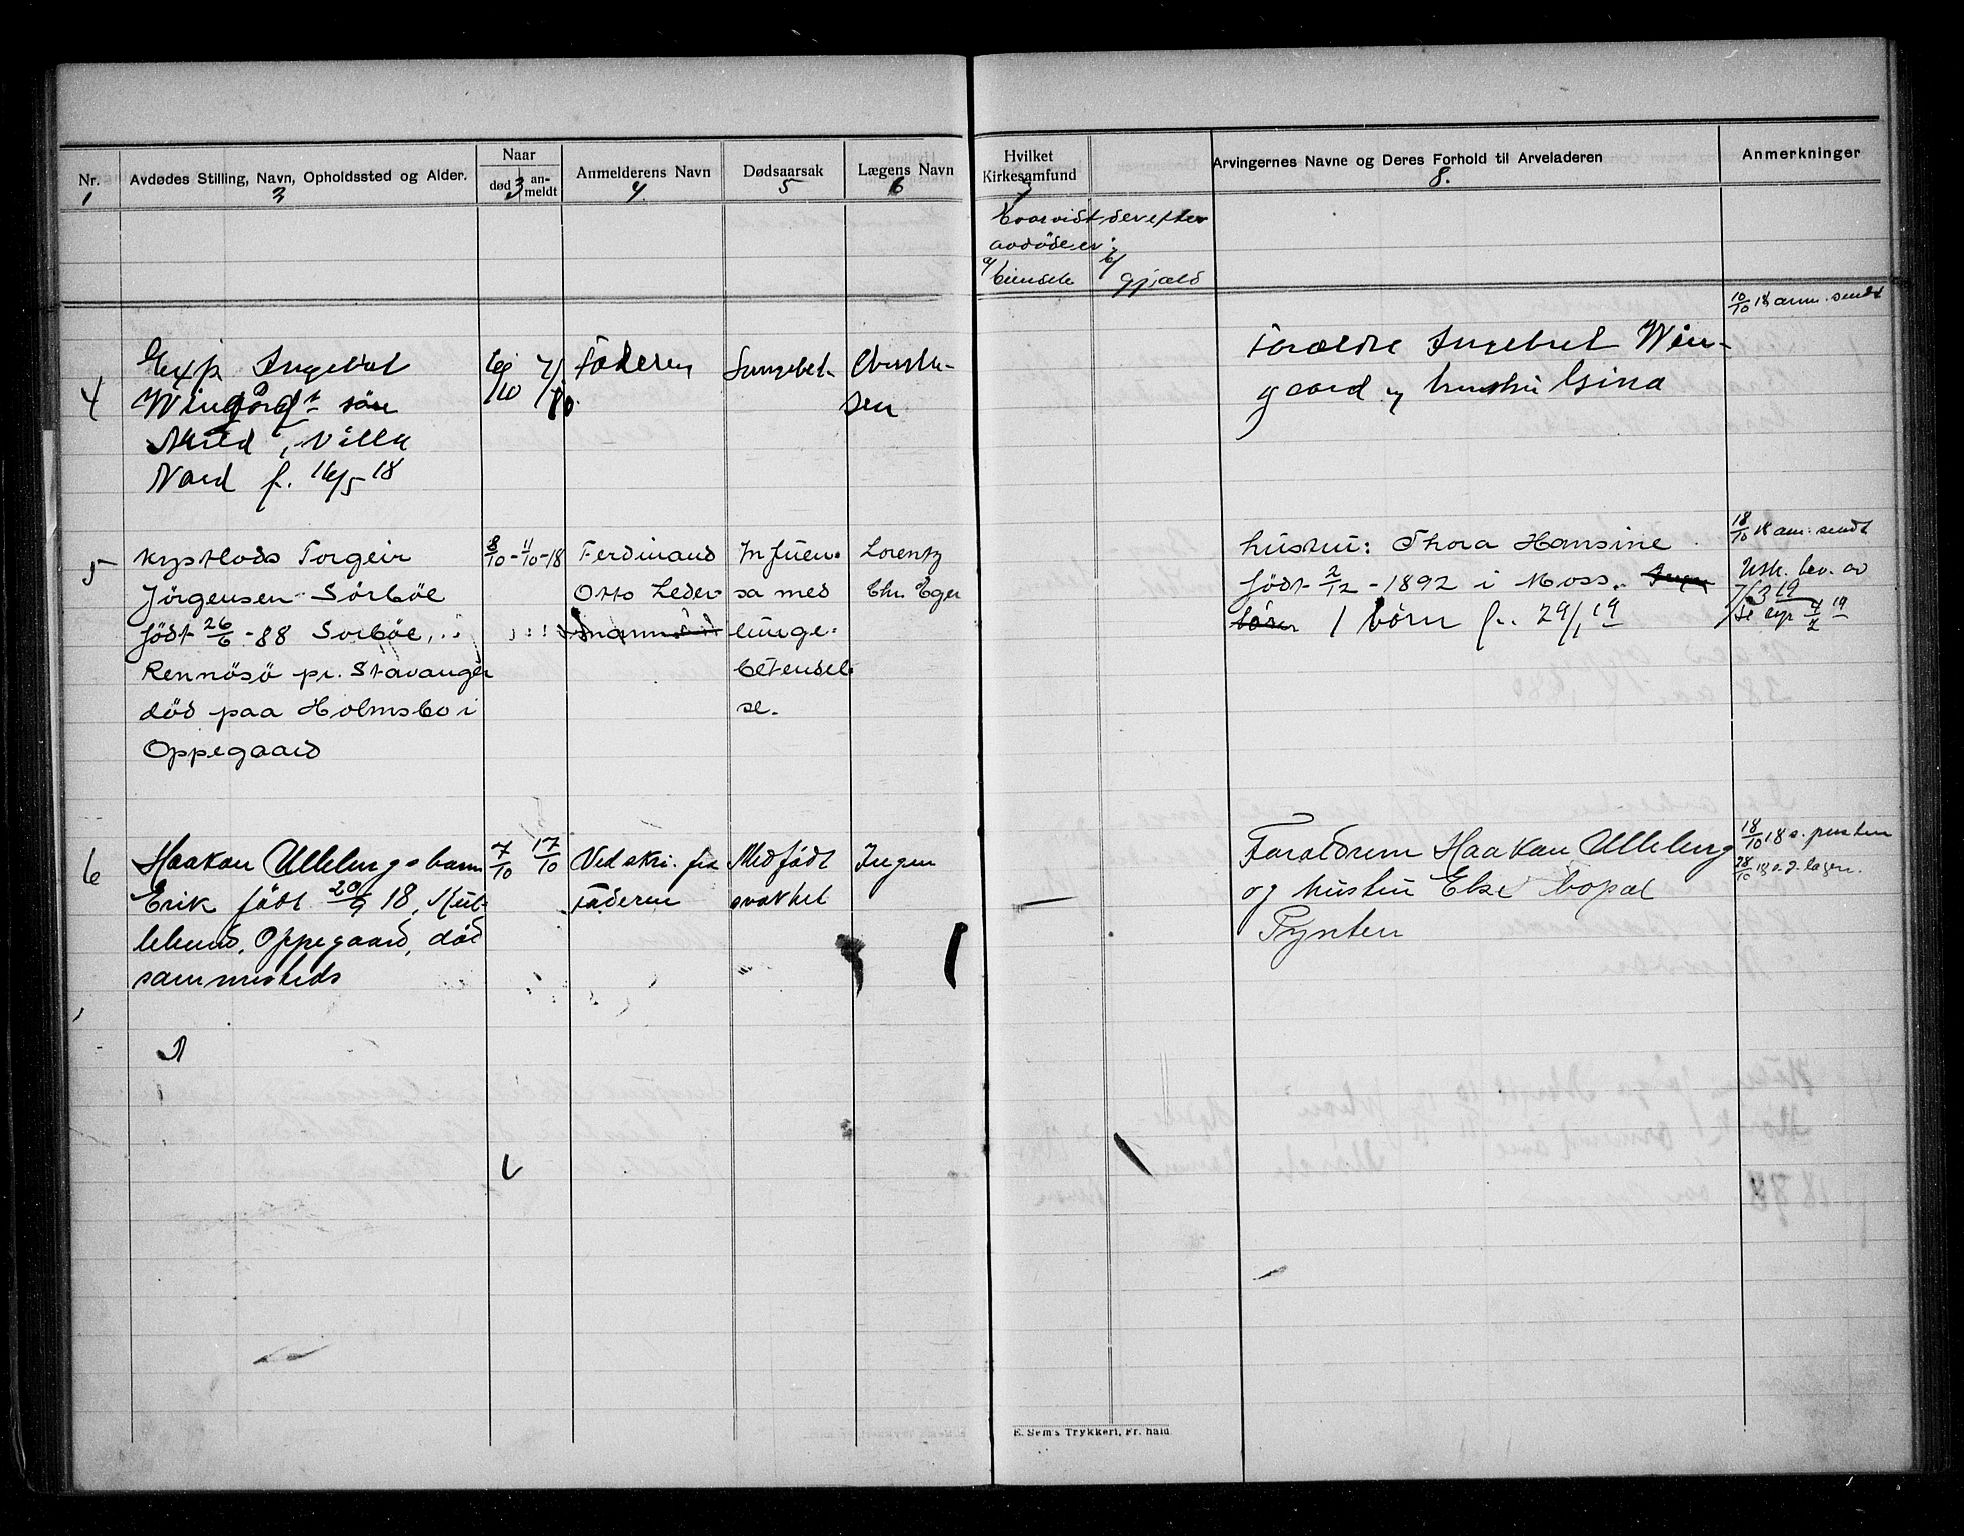 Nr.
Avdødes Stilling, Navn, Opholdssted og Alder.
Naar
død
an-
meldt
Anmelderens Navn
Dødsaarsak
Lægens Navn
Hvilket
Kirkesamfund
Arvingernes Navne og Deres Forhold til Arveladeren
Anmerkninger
1
2
3
4.
5
6
7
8.
Hvorvidt der efter
avdøde er:
a/ b/
Eiendele gjæld
4
Exp. Ingebret
Wingårds søn
Arild, Villa
Nord f. 16/5 18
6/10 7/10
Faderen
Lungebet.
Christen-
sen
Forældre Ingebret Win-
gaard og hustru Gina
10/10 18 anm. sendt
5
Kystlods Torgeir
Jörgensen Sörböe
födt 26/6 - 88 Sorböe,
Rennösö pr. Stavanger
död paa Holmsbo i
Oppegaard
8/10 - 11/10 - 18
Ferdinand
Otto Leder
Influen-
sa med
lunge-
betendel-
se.
Lorentz
Chr. Eger
hustru: Thora Hansine
födt 2/12 - 1892 i Moss. Ingen
börn 1 börn f. 29/1 19
18/10 18 anm. sendt
Usk. bev. av
7/3 19
se exp 4/2 19
6
Haakon Ullebergs barn
Erik födt 20/9 18,
Oppegaard, död
sammesteds
7/10 17/10
Ved skr. fra
Faderen
Medfödt
svakhet
Ingen
—
Forældrene Haakon Ulleberg
og hustru Else bopæl
Pynten
18/10 18 s. presten
28/10 18
E. Sem's Trykkeri, Fr.hald